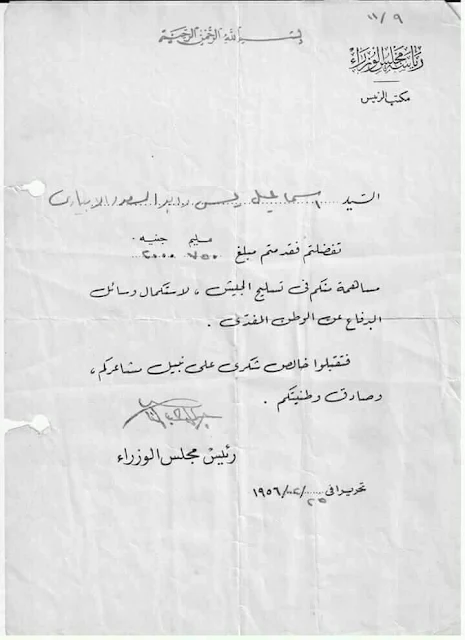 ١١/٩
بسم الله الرحمن الرحيم
رئاسة مجلس الوزراء
مكتب الرئيس
السيد اسماعيل
مليم جنيه
تفضلتم فقدمتم مبلغ ٧٥٠
مساهمة منكم فى تسليح الجيش ، لاستكمال وسائل
الدفاع عن الوطن المفدى .
فتقبلوا خالص شكرى على نبيل مشاعركم ،
وصادق وطنيتكم .
رئيس مجلس الوزراء
تحريرا فى ٢٥/ /١٩٥٦